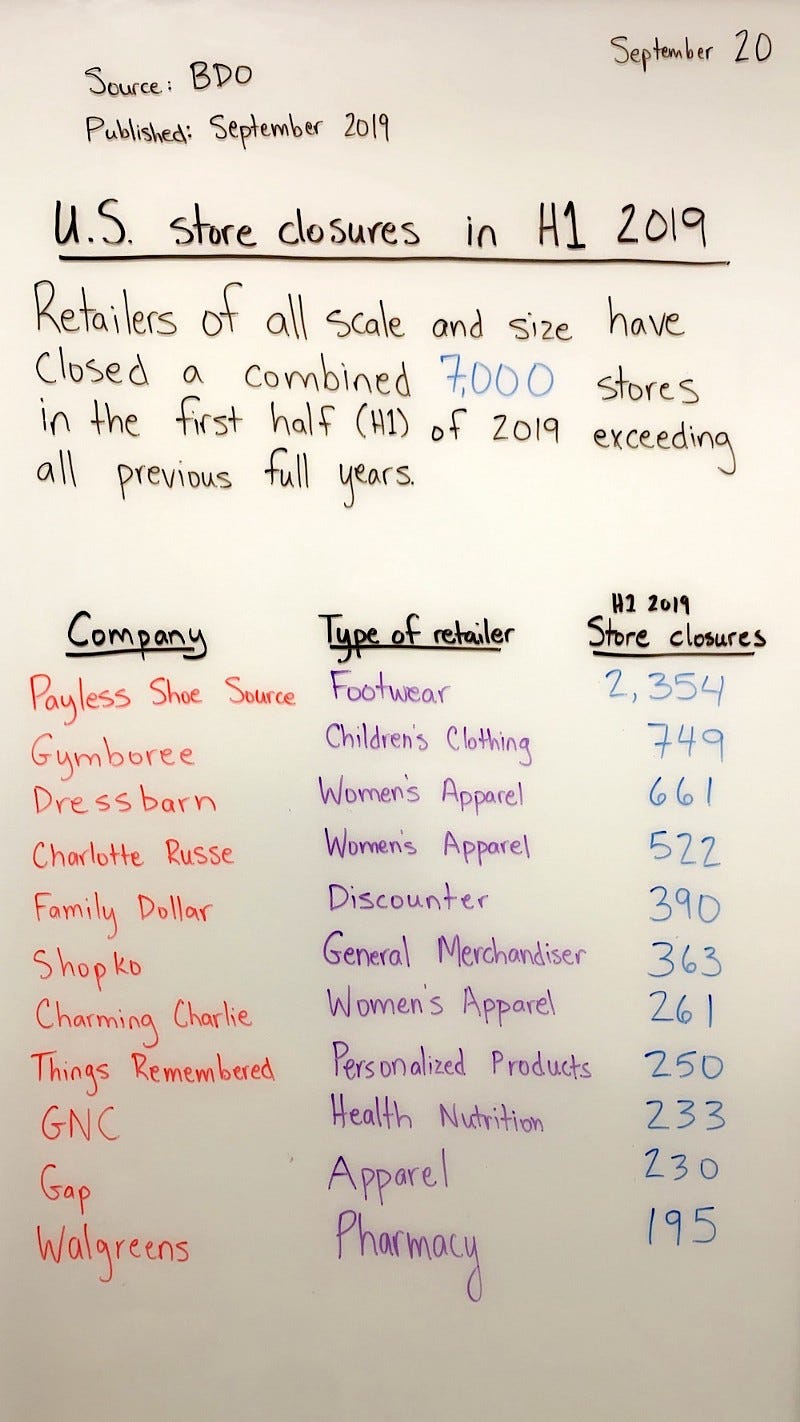 September 20
Source: BDO
Published: September 2019
U.S. store closures in H1 2019
Retailers of all scale and size have
closed a combined 7,000 stores
in the first half (H1) of 2019 exceeding
all previous full years.
H1 2019
Company Type of retailer Store closures
Payless Shoe Source Footwear 2,354
Gymboree Children's Clothing 749
Dressbarn Women's Apparel 661
Charlotte Russe Women's Apparel 522
Family Dollar Discounter 390
Shopko General Merchandiser 363
Charming Charlie Women's Apparel 261
Things Remembered Personalized Products 250
GNC Health Nutrition 233
Gap Apparel 230
Walgreens Pharmacy 195